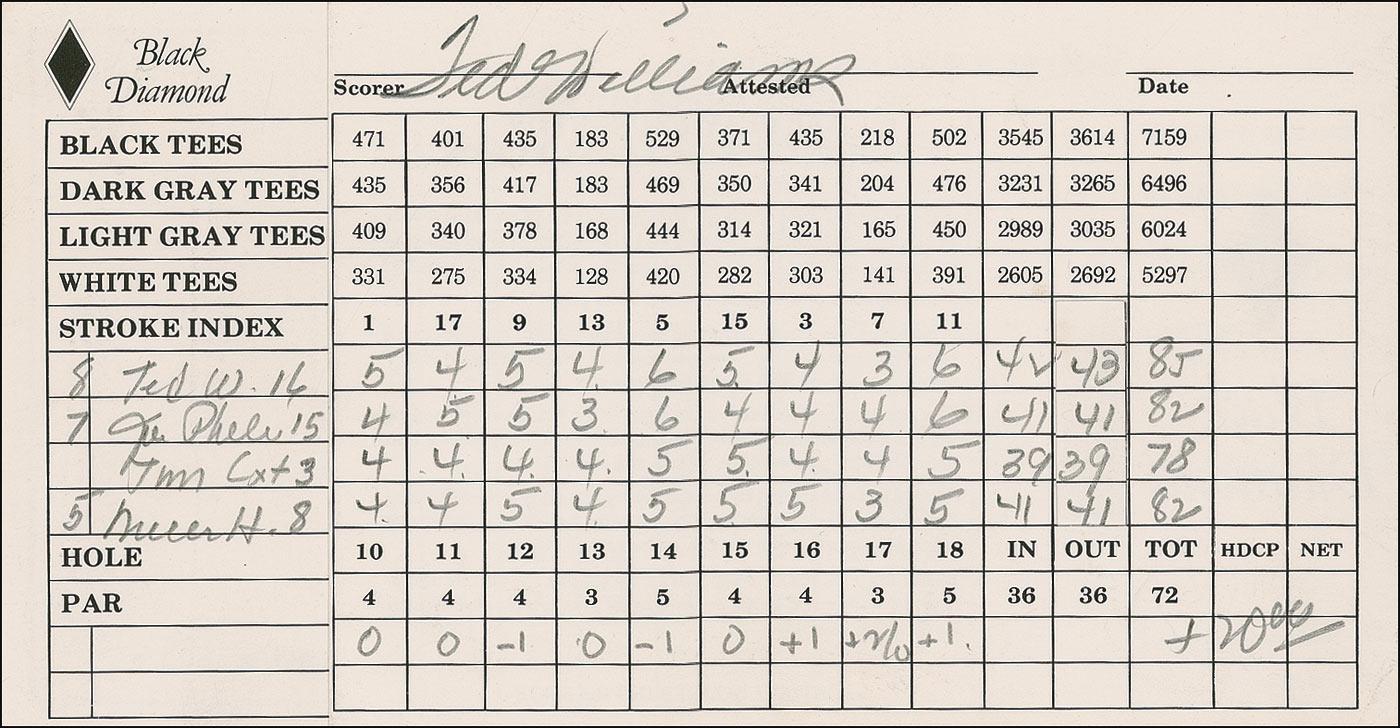 Black
Diamond
Ted Williams
Scorer Attested Date
BLACK TEES 471 401 435 183 529 371 435 218 502 3545 3614 7159
DARK GRAY TEES 435 356 417 183 469 350 341 204 476 3231 3265 6496
LIGHT GRAY TEES 409 340 378 168 444 314 321 165 450 2989 3035 6024
WHITE TEES 331 275 334 128 420 282 303 141 391 2605 2692 5297
STROKE INDEX 1 17 9 13 5 15 3 7 11
8 Ted W. 16 5 4 5 4 6 5 4 3 6 42 43 85
7 15 4 5 5 3 6 4 4 4 6 41 41 82
3 4 4 4 4 5 5 4 4 5 39 39 78
5 H. 8 4 4 5 4 5 5 5 3 5 41 41 82
HOLE 10 11 12 13 14 15 16 17 18 IN OUT TOT HDCP NET
PAR 4 4 4 3 5 4 4 3 5 36 36 72
0 0 -1 0 -1 0 +1 +1 +20